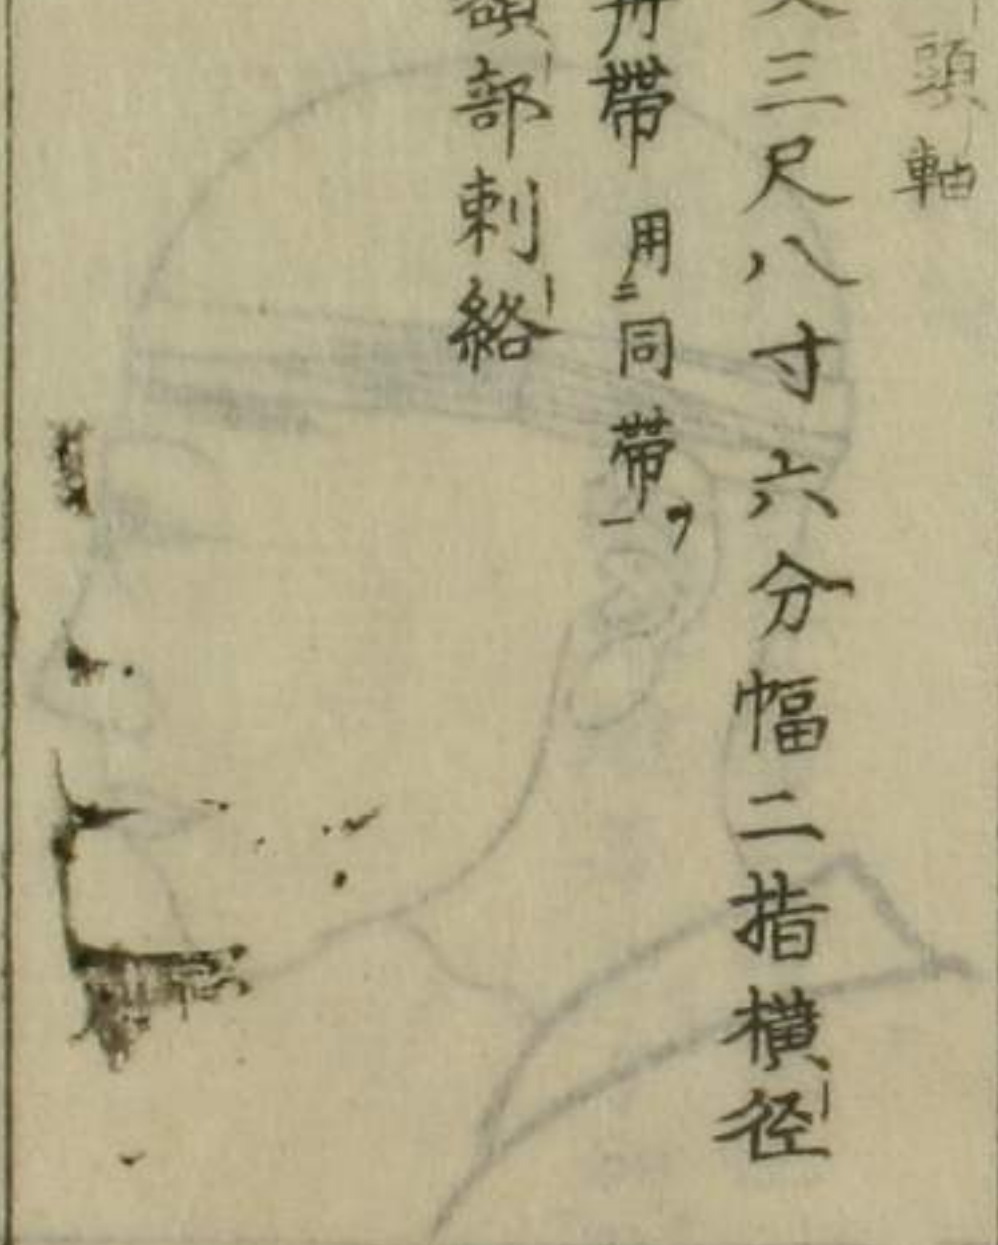 頭軸
三尺八寸六分幅二指横径
帯用ニ同帯一ツ
額部刺絡